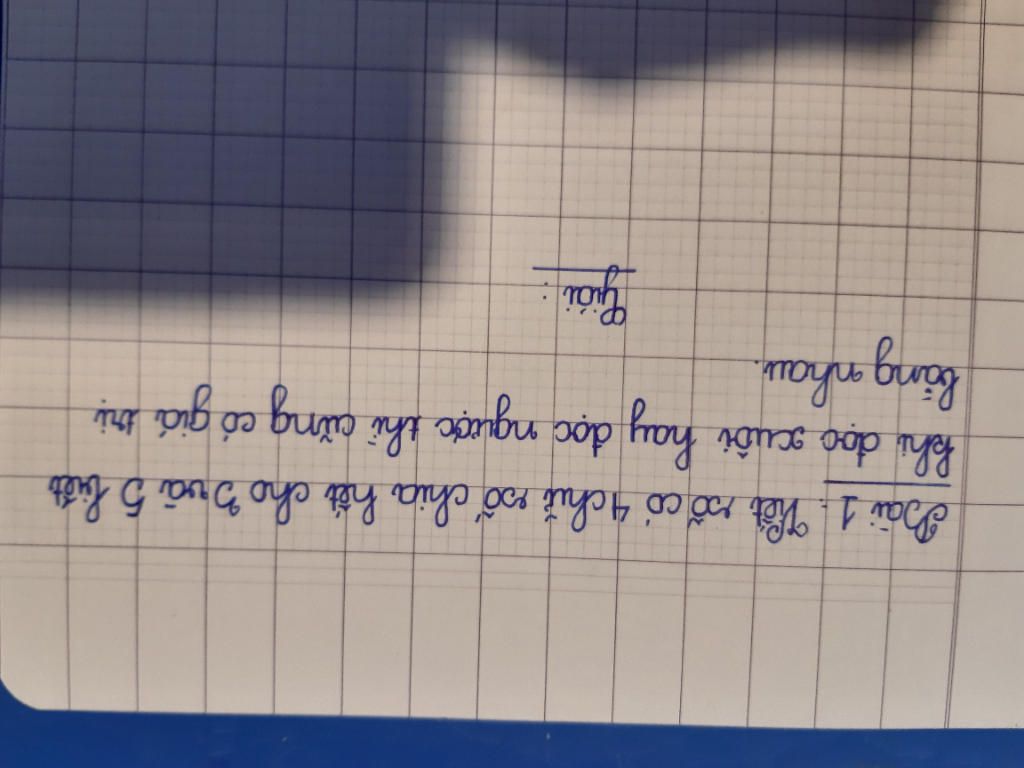 Bài 1: Viết số có 4 chữ số chia hết cho 3 và 5 biết
khi đọc xuôi hay đọc ngược thì cũng có giá trị
bằng nhau.
Giải: